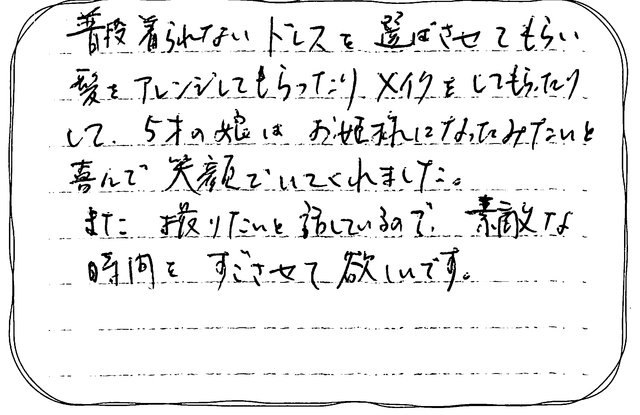 普段着られないドレスを選ばさせてもらい
髪をアレンジしてもらったり メイクをしてもらったり
して、5才の娘は お姫様になったみたいと
喜んで 笑顔でいてくれました。
また 撮りたいと話しているので、素敵な
時間を すごさせて欲しいです。